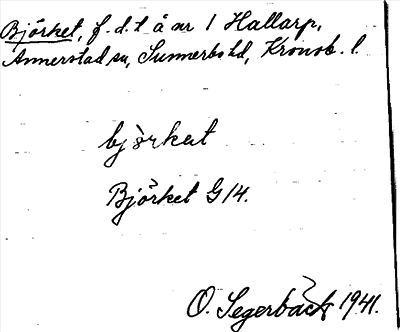 Björket, f.d.t å nr 1 Hallarp,
Annerstad sn, Sunnerbo hd, Kronob. l.
björkut
Björket G 14.
O. Segerbäck 1941.